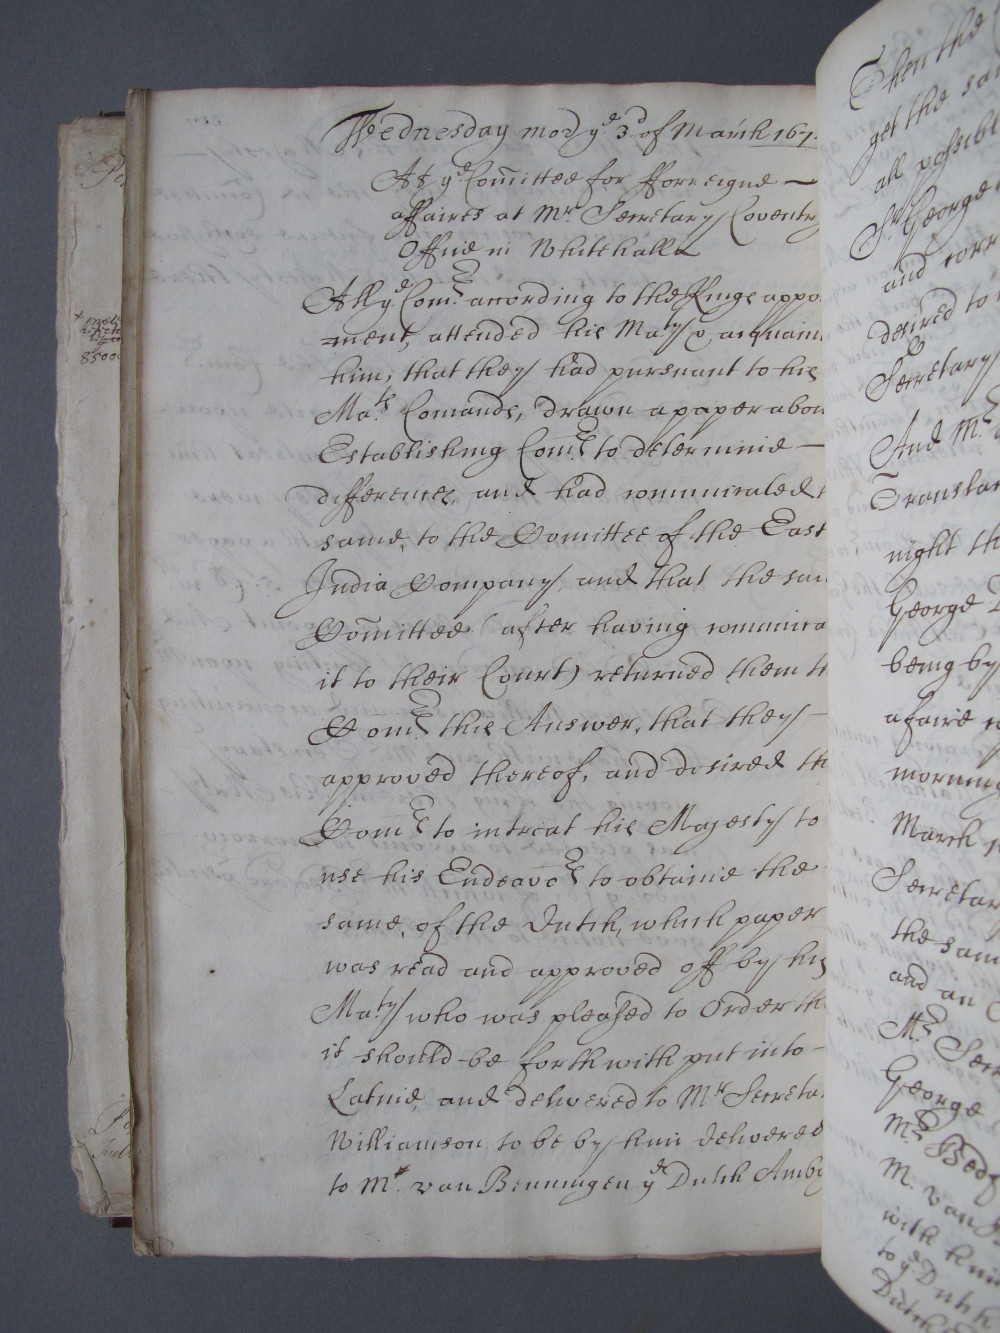 Wednesday morn ye 3d of March 167
At ye Comittee for fforreigne —
affaires at Mr Secretary Coventry
Office in Whitehall
All ye Comrs according to the Kings appo
ment, attended his Maty &
him, that they had pursuant to his
Mats Comands, drawn a paper abou
Establishing Comrs to determine —
differences, and had communicated t
same, to the Comittee of the East
India Company, and that the sam
Comittee (after having communica
it to their Court) returned them th
Comrs this Answer, that they —
approved thereof, and desired th
Comrs to intreat his Majesty to
use his Endeavors to obtaine the
same, of the Dutch, which paper
was read and approved off by his
Maty who was pleased to Order th
it should be forthwith put into —
Latine, and delivered to Mr Secreta
Williamson, to be by him delivered
to Mr. van Benningen ye Dutch Amb
8500
Then the
get the sa
all possibl
Sr George
and
desired to
Secretary
And Mr
Translat
night th
George D
being by
afaire
morning
March
Secretar
the sam
and an
Mr Secr
George
Mr Bed
M. van
with him
to ye Dutch
Dutch